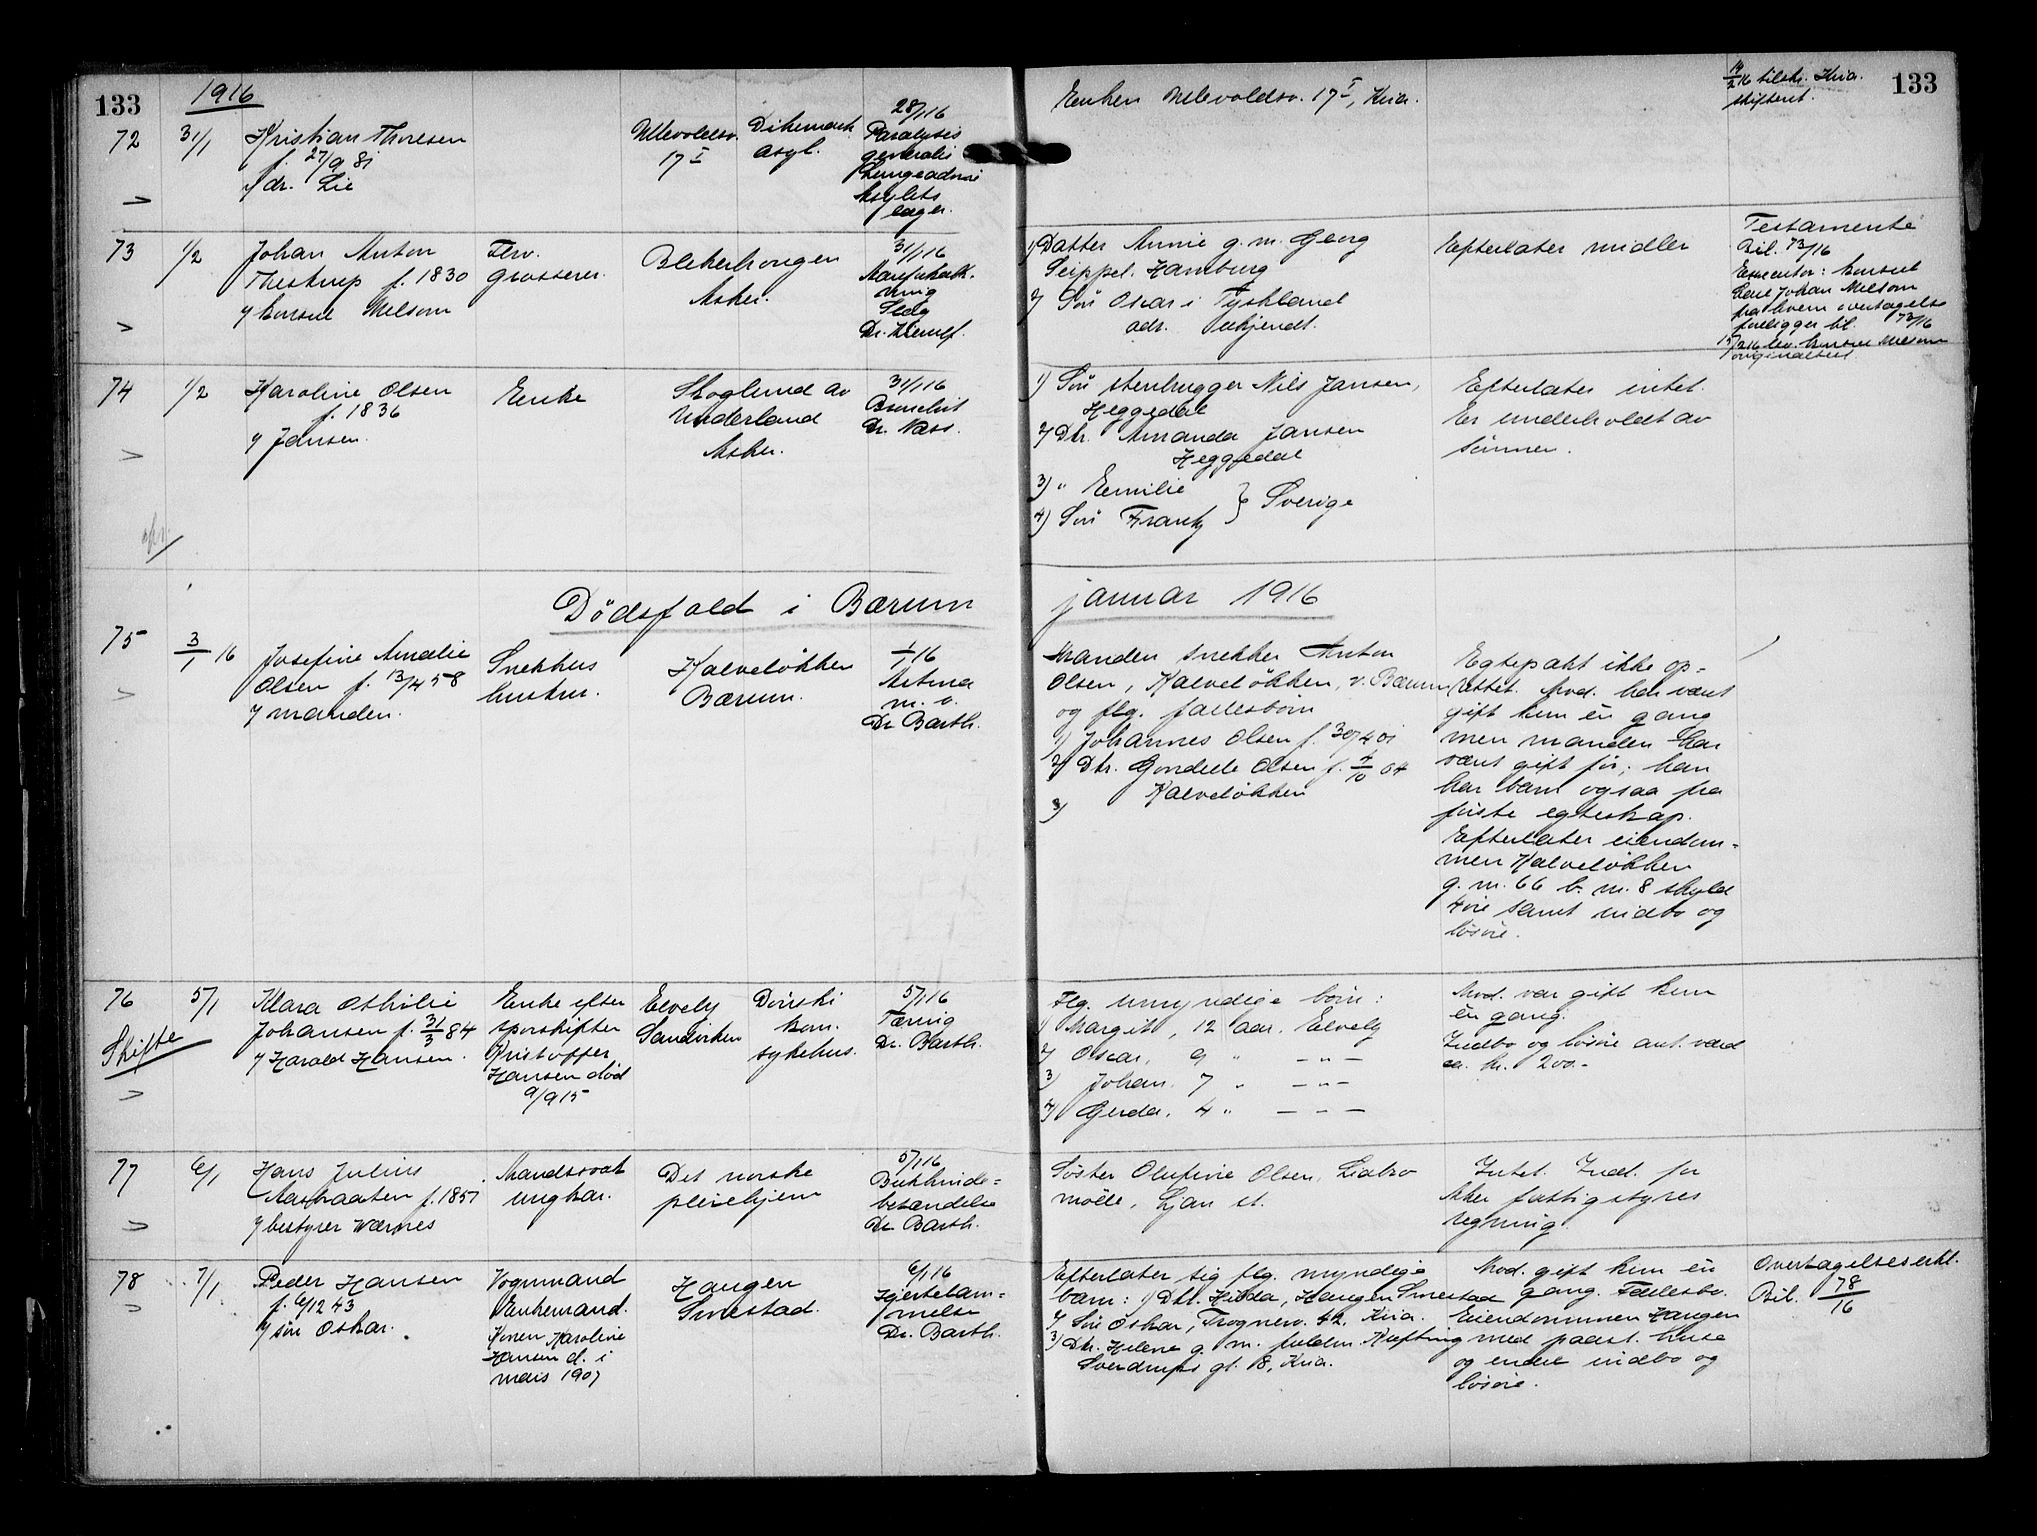 133
1916
72
31/1
Kristian Thoresen
f. 27/9 81
v/ dr. Lie
Ullevoldsv.
17 I
Dikemark
asyl.
28/1 16
Paralysis
generalis
Asylets
læge.
Enken Ullevoldsv. 17 I, Kria.
14/2 16 tilskr. Kria.
skifteret.
133
73
1/2
Johan Anton
Thestrup f. 1830
v/ konsul Melsom
Fhv.
grosserer.
Blekerhougen
Asker.
31/1 16
Slag
1) Datter Annie g. m. Georg
Seippel. Hamburg
2) Søn Oscar i Tyskland
adr. ukjendt.
Efterlater midler
Testamente
Bil. 73/16
Executor: konsul
Carl Johan Melsom
fra hvem overtagelse
foreligger bil. 73/16
15/2 16 lev. konsul Melsom
originaltest.
74
1/2
Karoline Olsen
f. 1836
v/ Jansen.
Enke
Skoglund av
Underland
Asker.
31/1 16
Dr. Næss.
1) Søn stenhugger Nils Jansen,
Heggedal
2) Dtr. Amanda Jansen
Heggedal
3) " Emilie
4) Søn Frantz } Sverige
Efterlater intet.
Er underholdt av
sønnen.
Dødsfald i Bærum
januar 1916
75
3/1 16
Josefine Amalie
Olsen f. 13/4 58
v/ manden.
Snekkers
hustru.
Kalveløkken
Bærum.
1/1 16
Astma
m. v.
Dr. Barth.
Manden snekker Anton
Olsen, Kalveløkken, v. Bærum
og flg. fællesbørn
1) Johannes Olsen f. 30/4 01
2) Dtr. Gondele Olsen f. 4/10 04
Kalveløkken
3)
Egtepakt ikke op-
rettet. Avd. har vært
gift kun èn gang
men manden har
vært gift før; han
har barn ogsaa fra
første egteskap.
Efterlater eiendom-
men Kalveløkken
g. nr. 66 b. nr. 8 skyld
4 øre samt indbo og
løsøre.
76
Skifte
5/1
Klara Othilie
Johansen f. 31/3 84
v/ Harald Hansen.
Enke efter
sporskifter
Kristoffer
Hansen død
9/9 15
Elvely
Sandviken
Dønski
kom.
sykehus.
5/1 16
Tæring
Dr. Barth.
Flg. umyndige børn:
1) Margit, 12 aar. Elvely
2) Oscar, 9 " — " —
3) Johan. 7 " — " —
4) Gerda. 4 " — " —
Avd. var gift kun
èn gang.
Indbo og løsøre ant. værd
ca. kr. 200.-
77
6/1
Hans Julius
Aasbraaten f. 1857
v/ bestyrer Wærnes
Mandssvak
ungkar.
Det norske
pleiehjem
5/1 16
Bukhinde-
betændelse
Dr. Barth.
Søster Olufine Olsen, Liabro
mølle, Ljan st.
Intet. Indl. for
Aker fattigstyres
regning.
78
7/1
Peder Hansen
f. 6/12 43
v/ søn Oskar.
Vognmand
Enkemand.
Konen Karoline
Hansen d. i
mars 1907
Haugen
Smestad.
6/1 16
Hjertelam-
melse
Dr. Barth.
Efterlater sig flg. myndige
barn: 1) Dtr. Hilda, Haugen Smestad
2) Søn Oskar, Frognerv. 42, Kria.
3) Dtr. Helene g. m. fuldm. Kufting
Sverdrups gt. 18, Kria.
Avd. gift kun èn
gang. Fællesbo.
Eiendommen Haugen
med paast. huse
og endel indbo og
løsøre.
Overtagelseserkl.
Bil. 78/16